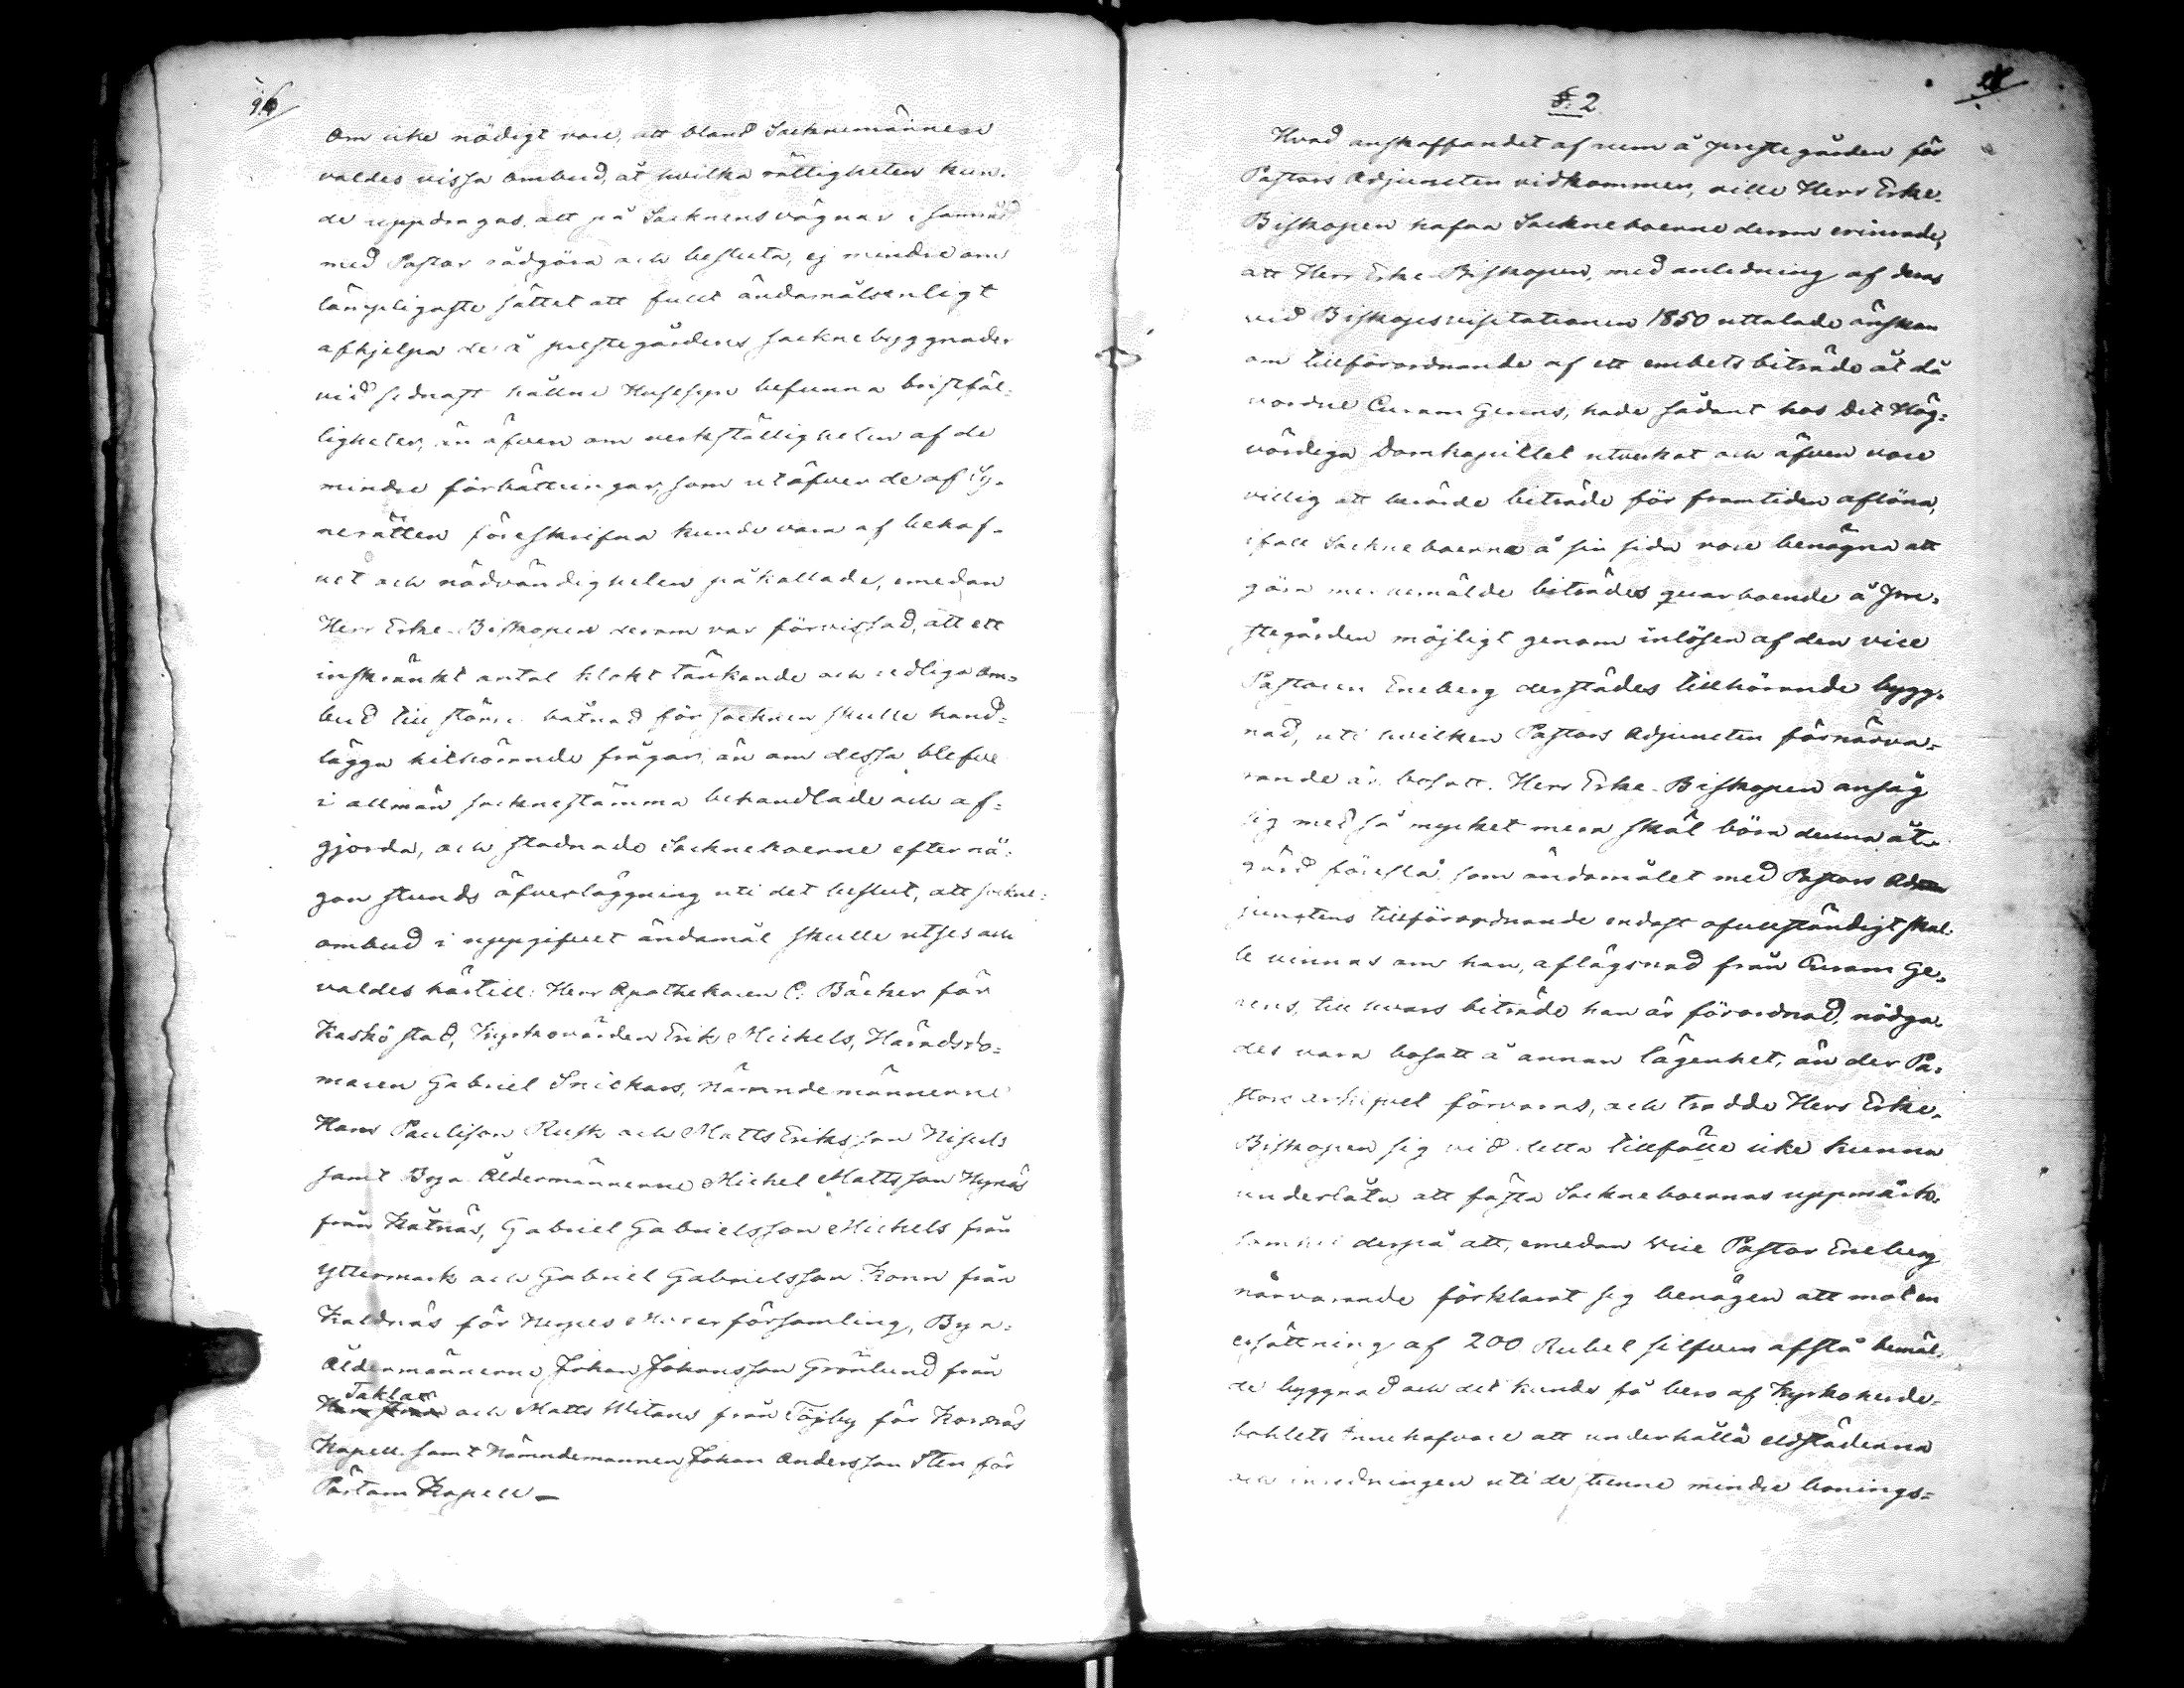 96
Om icke nödigt vore, att bland Socknemännene
valdes vissa Ombud, åt hvilka rättigheten kun-
de uppdragas, att på Socknens vägnar i samråd
med Pastor rådgöra och besluta, ej mindre om
lämpligaste sättet att fullt ändamålsenligt
afhjelpa de å prestegårdens socknebyggnader
vid sednast hållne Husesyn befunna bristfäl-
ligheter, än äfven om verkställigheten af de
mindre förbättringar, som utöfver de af Sy-
nerätten föreskrifna kunde vara af behof-
vet och nödvändigheten påkallade, emedan
Herr Erke-Biskopen derom var förvissad, att ett
inskränkt antal klokt tänkande och redliga Om-
bud till större båtnad för socknen skulle hand-
lägga hithörande frågor, än om dessa blefve
i allmän socknestämma behandlade och af-
gjorda, och stadnade Sockneboerne efter nå-
gon stunds öfverläggning uti det beslut, att sockne-
ombud i uppgifvet ändamål skulle utses och
valdes härtill: Herr Apothekaren C. Bäcker för
Kaskö stad, Kyrkovärden Erik Michels, Häradsdo-
maren Gabriel Snickars, Nämndemännerne
Hans Paulison Rusk och Matts Eriksson Nissuls
samt Bya Åldermännerne Michel Mattsson Hynäs
från Kåtnäs, Gabriel Gabrielsson Michels från
Yttermark och Gabriel Gabrielsson Konn från
Kaldnäs för Nerpes Moderförsamling, Bya-
Åldermännerne Johan Johansson Grönlund från
Taklax
och Matts Mitans från Töjby för Korsnäs
Kapell, samt Nämndemannen Johan Andersson Sten för
Pörtom Kapell –
§. 2
Hvad anskaffandet af rum å prestegården för
Pastors Adjuncten vidkommer, ville Herr Erke-
Biskopen hafva Socknboerne derom erinrade,
att Herr Erke-Biskopen, med anledning af deras
vid Biskopsvisitationen 1850 uttalade önskan
om tillförordnande af ett embetsbiträde åt då
vordne Curam Gerens, hade sådant hos Det Hög-
vördiga Domkapitlet utverkat och äfven vore
villig att berörde biträde för framtiden aflöna,
ifall Sockneboerne å sin sida vore benägna att
göra mernemälde biträdes quarboende å Pre-
stegården möjligt genom inlösen af den vice
Pastoren Eneberg derstädes tillhörande bygg-
nad, uti hvilken Pastors Adjuncten förnärva-
rande är bosatt. Herr Erke-Biskopen ansåg
sig med så mycket mera skäl böra denna åt-
gärd föreslå, som ändamålet med Pastors Ad-
junctens tillförordnande endast ofullständigt skul-
le vinnas om han, aflägsnad från Curam Ge-
rens, till hvars biträde han är förordnad, nödga-
des vara bosatt å annan lägenhet, än der Pa-
stors arkivet förvaras, och trodde Herr Erke-
Biskopen sig vid detta tillfälle icke kunna
underlåta att fästa Sockneboernas uppmärk-
samhet derpå att, emedan Vice Pastor Eneberg
närvarande förklarat sig benägen att mot en
ersättning af 200 Rubel silfver afstå bemäl-
de byggnad och det kunde få bero af Kyrkoherde-
bohlets Innehafvare att underhålla eldstäderna
och inredningen uti de tvenne mindre bonings-